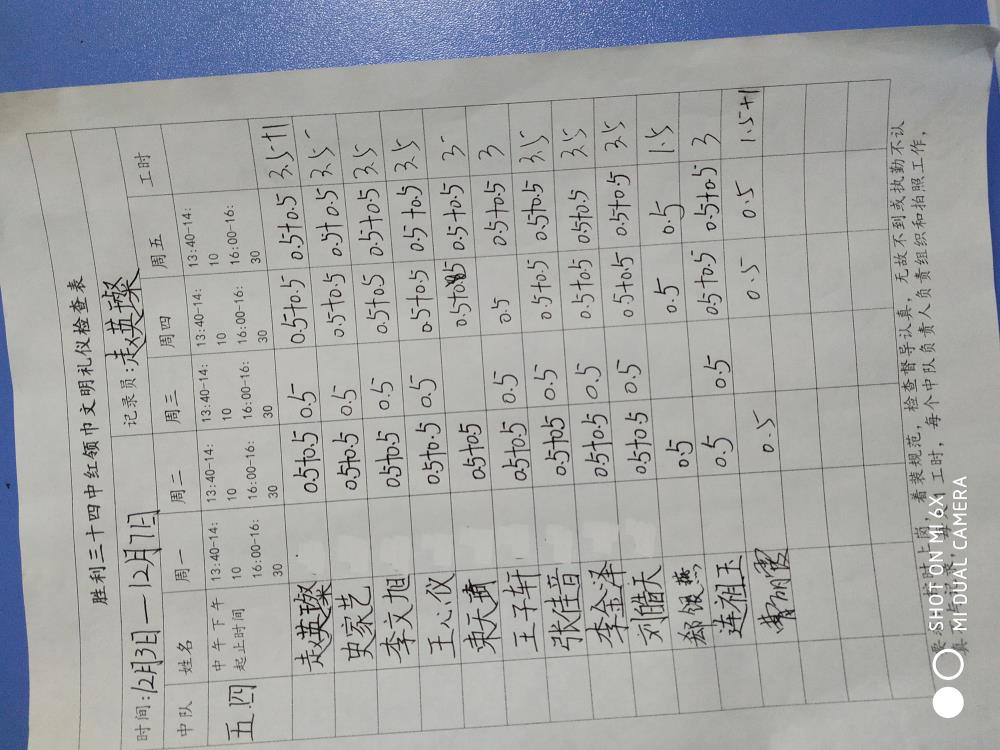 胜利三十四中红领巾文明礼仪检查表
时间:12月3日—12月7日 记录员:赵英璨
中队 姓名 周一 周二 周三 周四 周五 工时
中午下午起止时间 13:40-14:10 16:00-16:30 13:40-14:10 16:00-16:30 13:40-14:10 16:00-16:30 13:40-14:10 16:00-16:30 13:40-14:10 16:00-16:30
五.四 赵英璨 0.5+0.5 0.5 0.5+0.5 0.5+0.5 3.5+1
史家艺 0.5+0.5 0.5 0.5+0.5 0.5+0.5 3.5
李文旭 0.5+0.5 0.5 0.5+0.5 0.5+0.5 3.5
王心仪 0.5+0.5 0.5 0.5+0.5 0.5+0.5 3.5
宋天 0.5+0.5 0.5+0.5 0.5+0.5 3
王子轩 0.5+0.5 0.5 0.5 0.5+0.5 3
张佳音 0.5+0.5 0.5 0.5+0.5 0.5+0.5 3.5
李金泽 0.5+0.5 0.5 0.5+0.5 0.5+0.5 3.5
刘皓天 0.5+0.5 0.5 0.5+0.5 0.5+0.5 3.5
郑 0.5 0.5 0.5 1.5
连祖玉 0.5 0.5 0.5+0.5 0.5+0.5 3
曹丽霞 0.5 0.5 0.5 1.5+1
按时上岗,着装规范,检查督导认真,无故不到或执勤不认
真 工时,每个中队负责人负责组织和拍照工作,
SHOT ON MI 6X
MI DUAL CAMERA